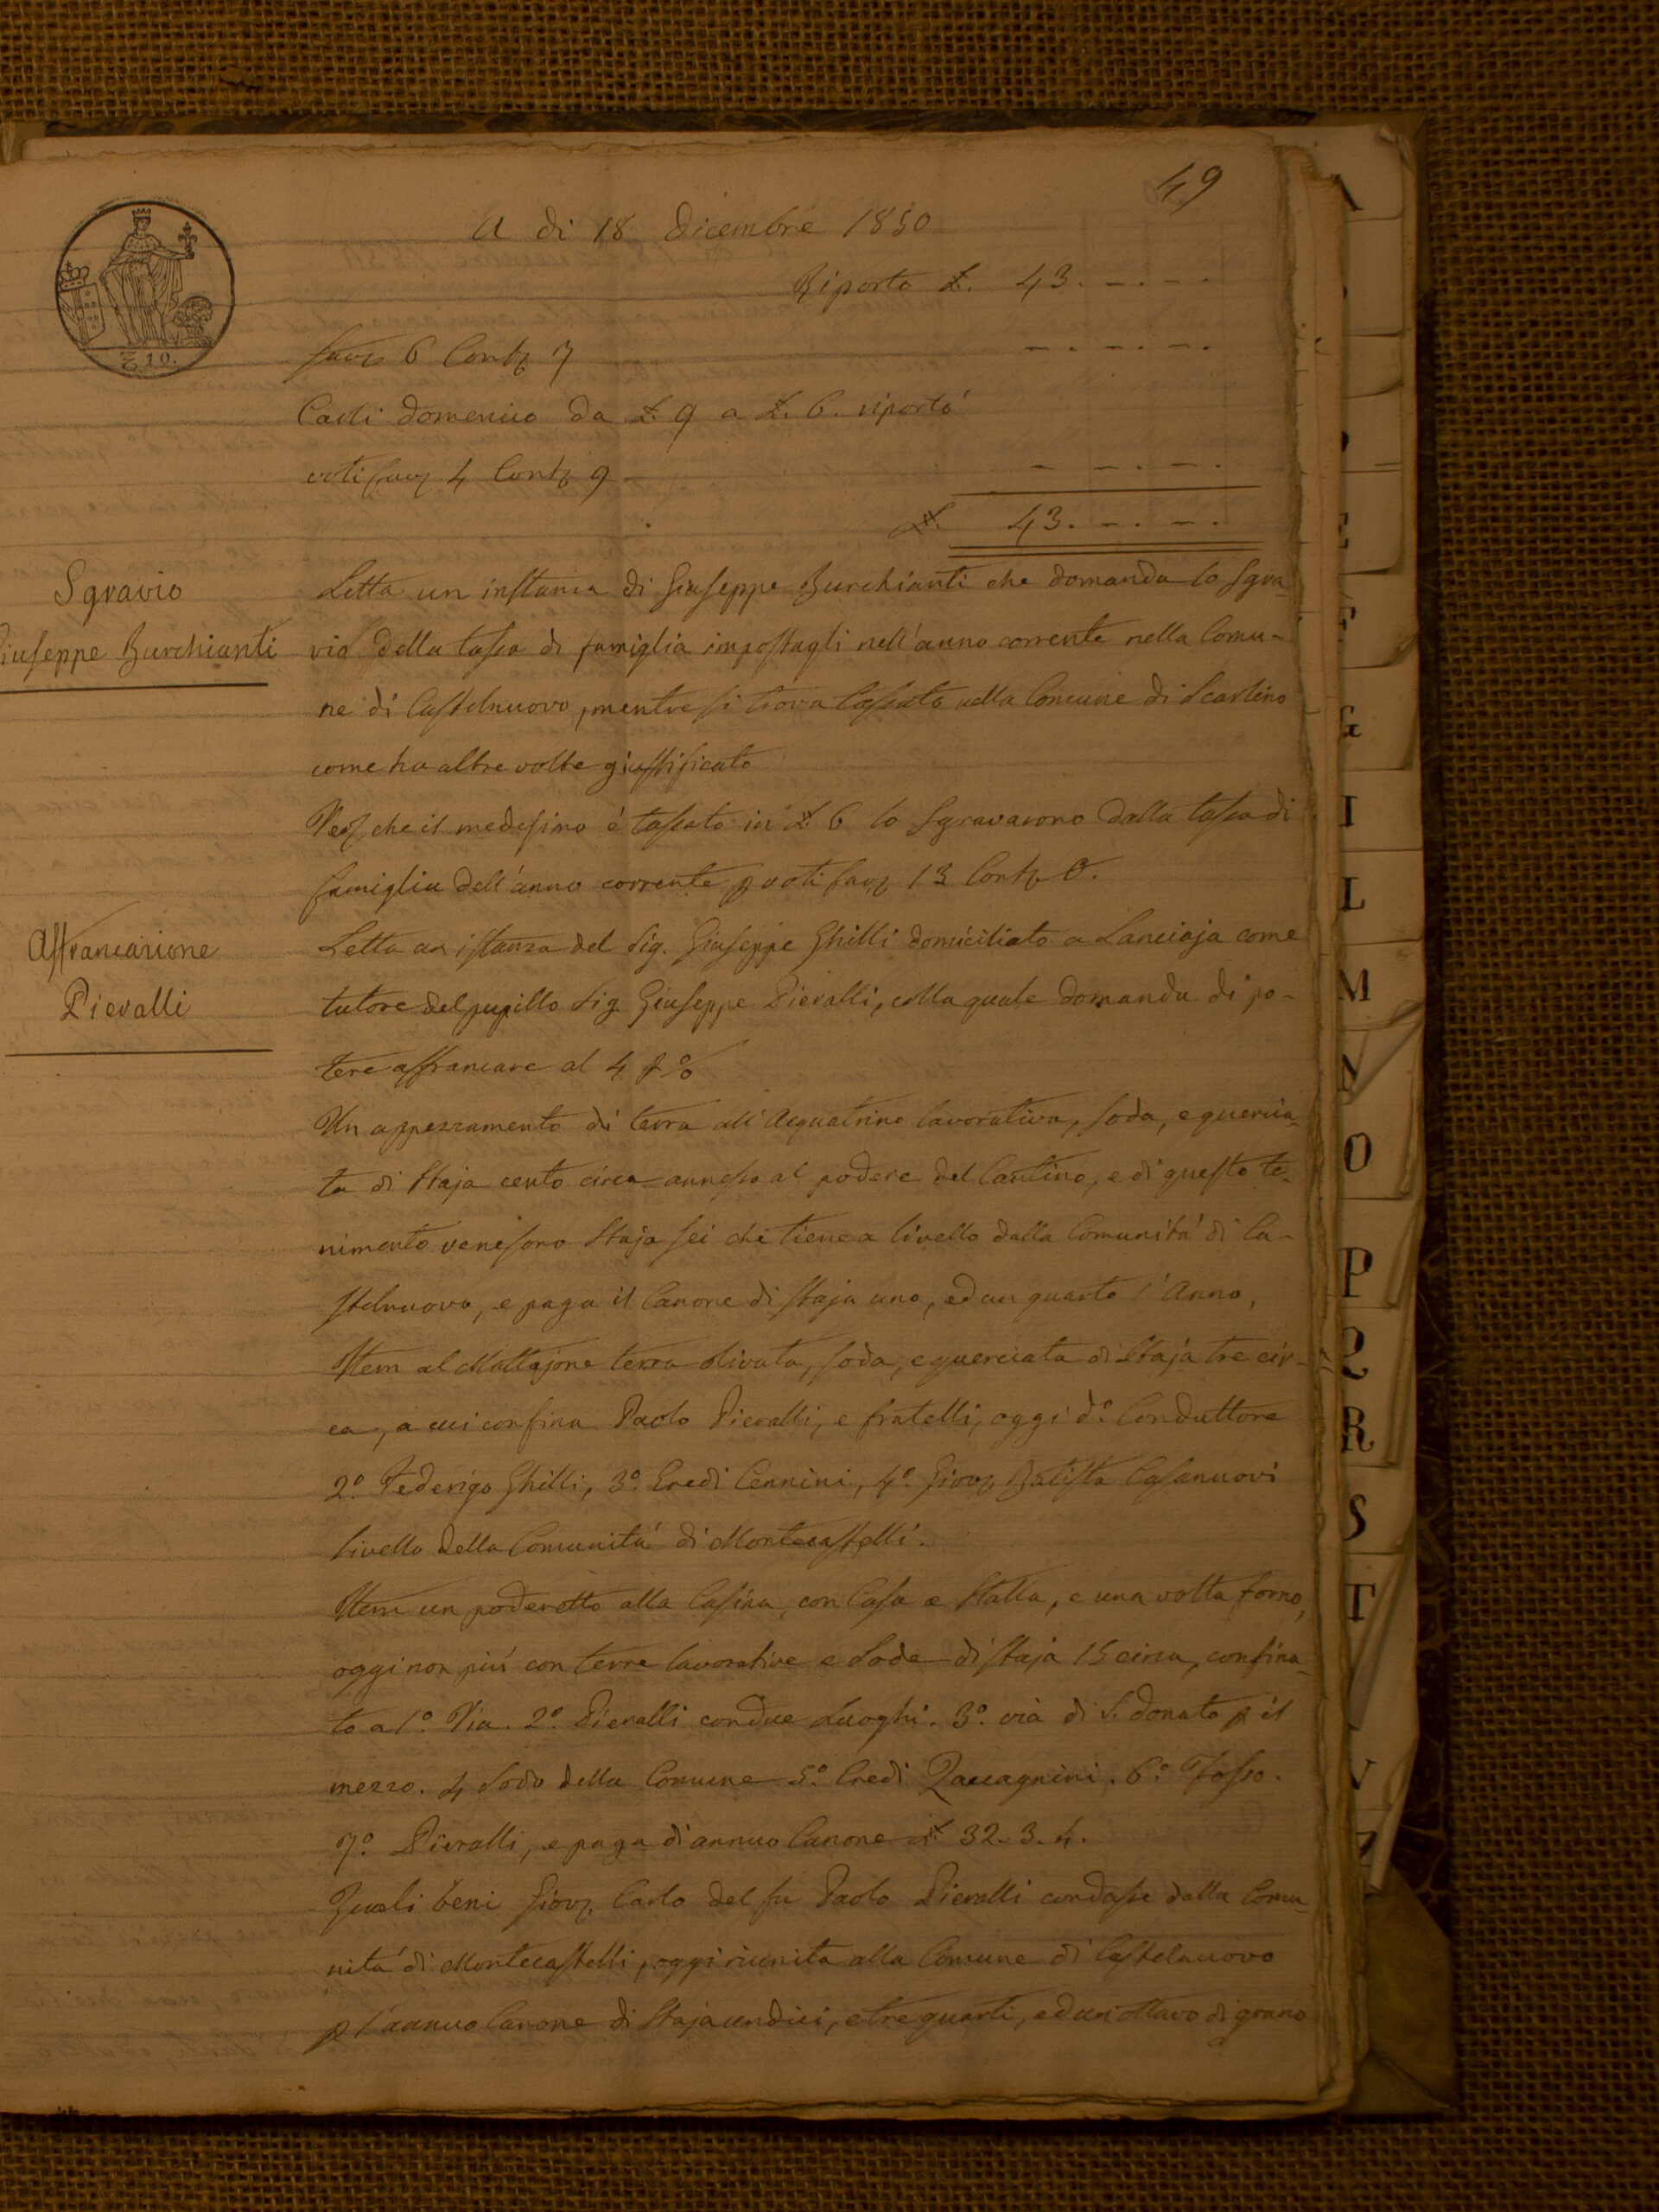 49
A di 18 Dicembre 1850
Riporto £. 43. – . – .
₤ 10.
favi 6 Contr 7 – . – . – .
Carli Domenico da £. 9 a £. 6. riportò
voti favr 4 Contr 9 – – . – .
£. 43. – . – .
Sgravio
Giuseppe Burchianti
Letta un instanza di Giuseppe Burchianti che domanda lo Sgra-
vio della tassa di famiglia impostagli nell'anno corrente nella Comu-
ne di Castelnuovo, mentre si trova tassato nella Comune di Scarlino
come ha altre volte giustificato
che il medesimo é tassato in £ 6 lo Sgravarono dalla tassa di
famiglia dell'anno corrente p voti favr 13 Contr 0.
Affrancazione
Pieralli
Letta an istanza del Sig. Giuseppe Ghilli domiciliato a Lanciaja come
tutore del pupillo Sig. Giuseppe Pieralli, colla quale domanda di po-
tere affrancare al 4 p %
Un appezzamento di terra all'Acquatrino lavorativa, soda, e quercia-
ta di Staja cento circa annesso al podere del Cantino, e di questo te-
nimento vene sono Staja sei che tiene a livello dalla Comunità di Ca-
stelnuovo, e paga il Canone di staja uno, ed un quarto l'Anno,
Item al Mattajone terra olivata, soda, e querciata di Staja tre cir-
ca, a cui confina Paolo Pieralli, e fratelli, oggi d.º Conduttore
2º. Federigo Ghilli, 3º. Eredi Cennini, 4º. Giovr Batista Casanuovi
livello della Comunità di Montecastelli.
Item un poderetto alla Casina, con Casa e Stalla, e una volta forno,
oggi non più con terre lavorative e Sode di staja 15 circa, confina-
to a 1º. Via. 2º. Pieralli con due Luoghi. 3º. via di S. Donato p il
mezzo. 4 Sodo della Comune 5º. Eredi Zaccagnini. 6º. Fosso.
7º. Pieralli, e paga di annuo Canone £ 32. 3. 4.
Quali beni Giovr Carlo del fu Paolo Pieralli condusse dalla Comu-
nità di Montecastelli, oggi riunita alla Comune di Castelnuovo
p l'annuo Canone di Staja undici, e tre quarti, ed un ottavo di grano
E
F
G
I
L
M
N
O
P
Q
R
S
T
V
Z